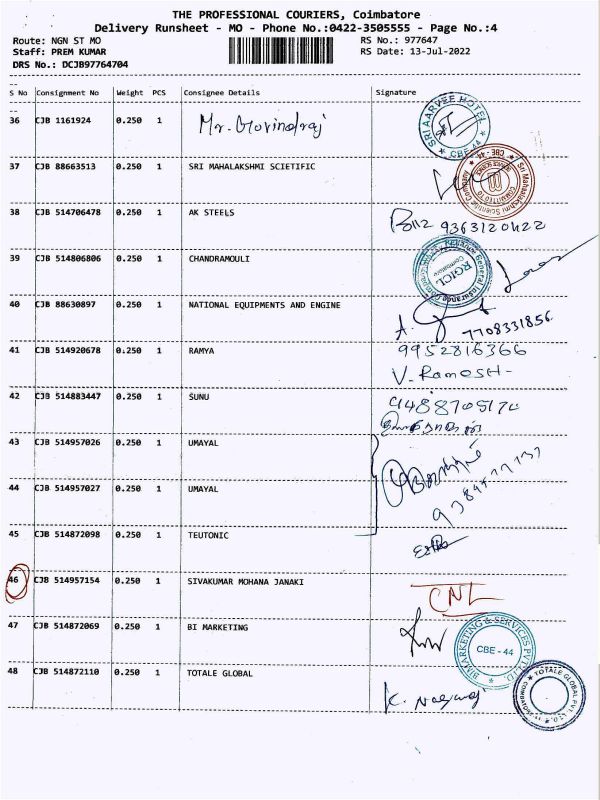 THE PROFESSIONAL COURIERS, Coimbatore
Delivery Runsheet - MO - Phone No.:0422-3505555 - Page No.:4
Route: NGN ST MO RS No.: 977647
Staff: PREM KUMAR RS Date: 13-Jul-2022
DRS No.: DCJB97764704
S No Consignment No Weight PCS Consignee Details Signature
36 CJB 1161924 0.250 1 Mr. Govindraj SRI AARVEE HOTEL CBE-44
37 CJB 88663513 0.250 1 SRI MAHALAKSHMI SCIETIFIC Sri Mahalakshmi Scientific COMMITTED TO
38 CJB 514706478 0.250 1 AK STEELS 9363120422
39 CJB 514806806 0.250 1 CHANDRAMOULI Reliance General Insurance Company RGICL Coimbatore
40 CJB 88630897 0.250 1 NATIONAL EQUIPMENTS AND ENGINE A. 7708331856
41 CJB 514920678 0.250 1 RAMYA 9952816366
V. Ramesh
42 CJB 514883447 0.250 1 SUNU
43 CJB 514957026 0.250 1 UMAYAL
44 CJB 514957027 0.250 1 UMAYAL
45 CJB 514872098 0.250 1 TEUTONIC
46 CJB 514957154 0.250 1 SIVAKUMAR MOHANA JANAKI CNL
47 CJB 514872069 0.250 1 BI MARKETING BI MARKETING & SERVICES PVT LTD. CBE - 44
48 CJB 514872110 0.250 1 TOTALE GLOBAL K. Nagaraj TOTALE GLOBAL PVT. LTD.